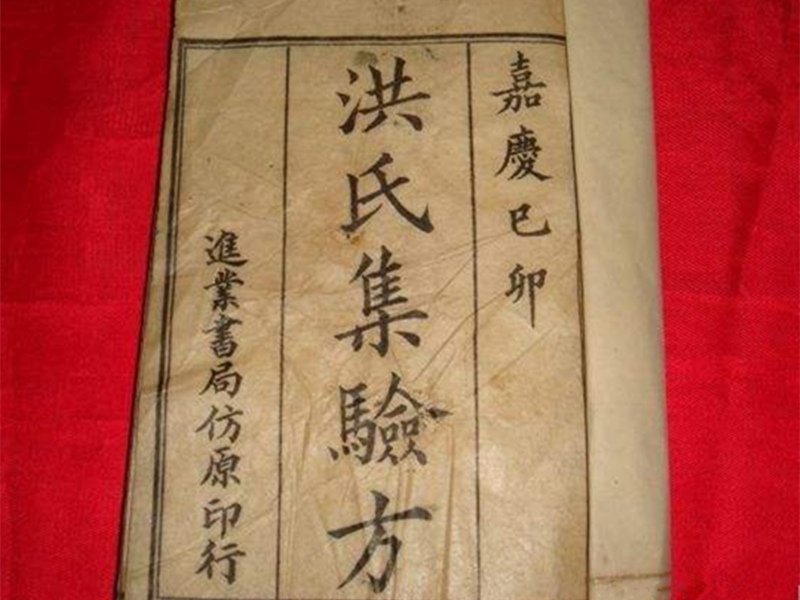 嘉慶己卯
洪氏集驗方
進業書局仿原印行